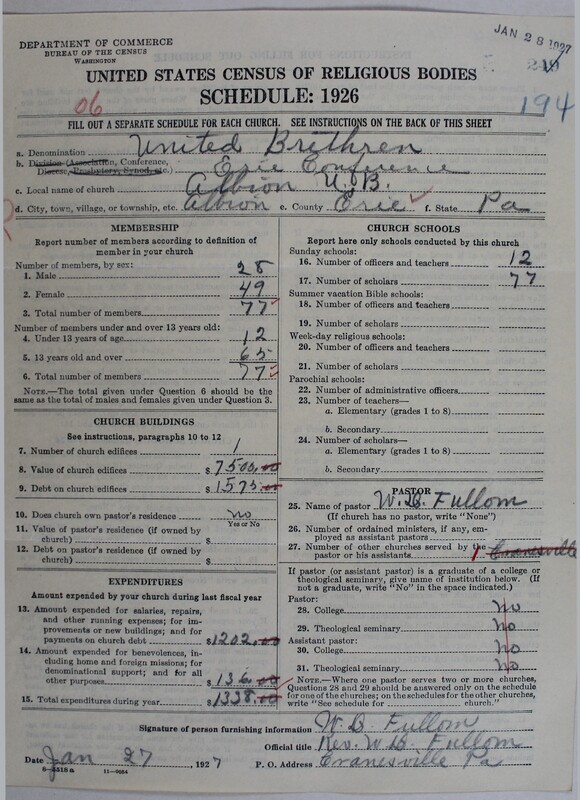 JAN 28 1927
DEPARTMENT OF COMMERCE
BUREAU OF THE CENSUS
WASHINGTON
UNITED STATES CENSUS OF RELIGIOUS BODIES
06
SCHEDULE: 1926
194
FILL OUT A SEPARATE SCHEDULE FOR EACH CHURCH. SEE INSTRUCTIONS ON THE BACK OF THIS SHEET
a. Denomination United Brethren
b. Division (Association, Conference, Diocese, Presbytery, Synod, etc.) Erie Conference
c. Local name of church Albion U.B.
d. City, town, village, or township, etc. Albion e. County Erie f. State Pa
MEMBERSHIP
Report number of members according to definition of
member in your church
Number of members, by sex:
1. Male 28
2. Female 49
3. Total number of members 77
Number of members under and over 13 years old:
4. Under 13 years of age 12
5. 13 years old and over 65
6. Total number of members 77
NOTE.—The total given under Question 6 should be
same as the total of males and females given under Question 3.
CHURCH BUILDINGS
See instructions, paragraphs 10 to 12
7. Number of church edifices 1
8. Value of church edifices $ 7500.00
9. Debt on church edifices $ 1575.00
10. Does church own pastor's residence no
Yes or No
11. Value of pastor's residence (if owned by
church) $
12. Debt on pastor's residence (if owned by
church) $
EXPENDITURES
Amount expended by your church during last fiscal year
13. Amount expended for salaries, repairs,
and other running expenses; for im-
provements or new buildings; and for
payments on church debt $ 1202.00
14. Amount expended for benevolences, in-
cluding home and foreign missions; for
denominational support; and for all
other purposes $ 136.00
15. Total expenditures during year $ 1338.00
CHURCH SCHOOLS
Report here only schools conducted by this church
Sunday schools:
16. Number of officers and teachers 12
17. Number of scholars 77
Summer vacation Bible schools:
18. Number of officers and teachers
19. Number of scholars
Week-day religious schools:
20. Number of officers and teachers
21. Number of scholars
Parochial schools:
22. Number of administrative officers
23. Number of teachers—
a. Elementary (grades 1 to 8)
b. Secondary
24. Number of scholars—
a. Elementary (grades 1 to 8)
b. Secondary
PASTOR
25. Name of pastor W. B. Fullom
(If church has no pastor, write "None")
26. Number of ordained ministers, if any, em-
ployed as assistant pastors
27. Number of other churches served by the
pastor or his assistants 1 Cranesville
If pastor (or assistant pastor) is a graduate of a college or
theological seminary, give name of institution below. (If
not a graduate, write "No" in the space indicated.)
Pastor:
28. College No
29. Theological seminary No
Assistant pastor:
30. College No
31. Theological seminary No
NOTE.—Where one pastor serves two or more churches,
Questions 28 and 29 should be answered only on the schedule
for one of the churches; on the schedules for the other churches
write "See schedule for church."
Signature of person furnishing information W. B. Fullom
Official title Rev. W. B. Fullom
Date Jan 27, 1927 P. O. Address Cranesville Pa
8—4518a 11—9064